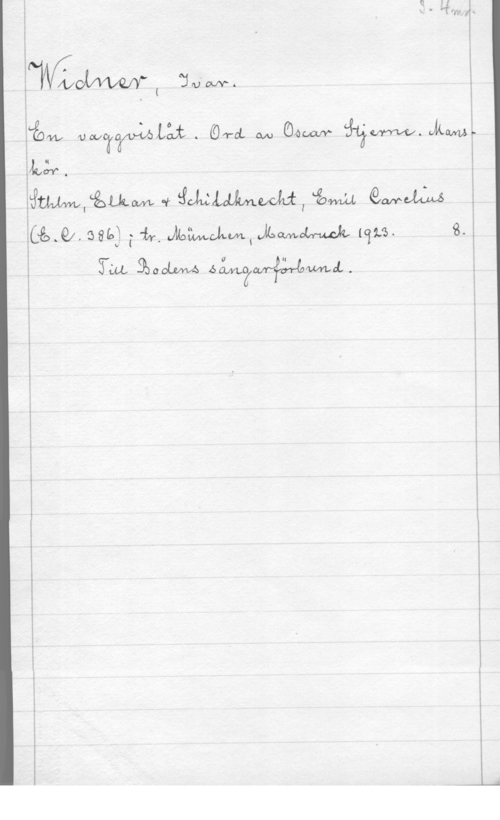 3 - 4 mr.
Widner, Ivar.
En vaggvislåt. Ord av Oscar Stjerne. Mans-
kör.
Sthlm, Elkan & Schildknecht, Emil Carelius
(E.C. 386); tr. München, Mandruck 1923. 8.
Till Bodens sångarförbund.